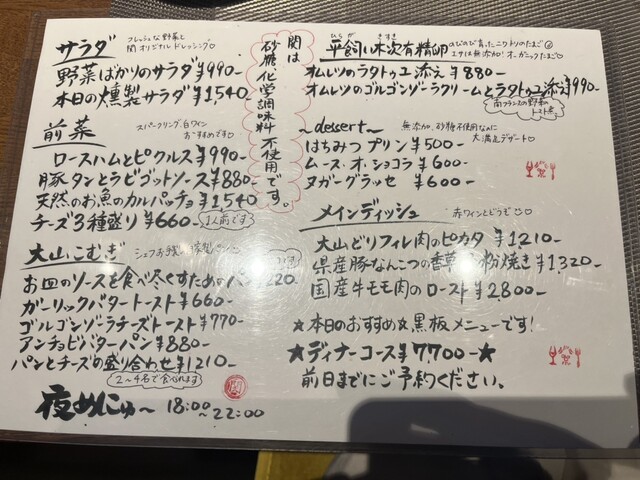 サラダ
フレッシュな野菜と
関オリジナルドレッシング♡
野菜ばかりのサラダ ¥990-
本日の燻製サラダ ¥1,540-
前菜
スパークリング、白ワイン
おすすめです♡
ロースハムとピクルス ¥990-
豚タンとラビゴットソース ¥880-
天然のお魚のカルパッチョ ¥1,540
チーズ3種盛り ¥660-
1人前です
大山こむぎ
お皿のソースを食べ尽くすためのパン
220-
ガーリックバタートースト ¥660-
ゴルゴンゾーラチーズトースト ¥770-
アンチョビバターパン ¥880-
パンとチーズの盛り合わせ ¥1,210-
2~4名で食べれます
関
夜めにゅ~ 18:00~22:00
関は
砂糖、化学調味料
不使用です。
ひらがい きすき
平飼い木次有精卵
のびのび育ったニワトリのたまご
エサは無添加!オーガニックたまご♡
オムレツのラタトゥユ添え ¥880-
オムレツのゴルゴンゾーラクリームとラタトゥユ添え ¥990-
南フランスの野菜の
トマト煮
~dessert~
無添加、砂糖不使用なんに
大満足デザート♡
はちみつプリン ¥500-
ムース・オ・ショコラ ¥600-
ヌガーグラッセ ¥600-
メインディッシュ
赤ワインとどうぞ♡
大山どりフィレ肉のピカタ ¥1,210-
県産豚なんこつの香草
粉焼き ¥1,320-
国産牛モモ肉のロースト ¥2800-
★本日のおすすめは黒板メニューです!
★ディナーコース ¥7,700-★
前日までにご予約ください。